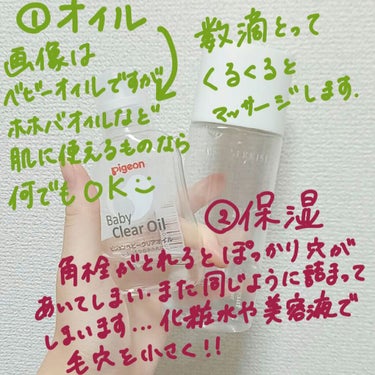 ①オイル
画像は
ベビーオイルですが
ホホバオイルなど
肌に使えるものなら
何でもOK
数滴とって
くるくると
マッサージします.
pigeon
Baby
Clear Oil
ピジョンベビークリアオイル
②保湿
角栓がとれるとぽっかり穴が
あいてしまい、また同じように詰まって
しまいます...化粧水や美容液で
毛穴を小さく!!